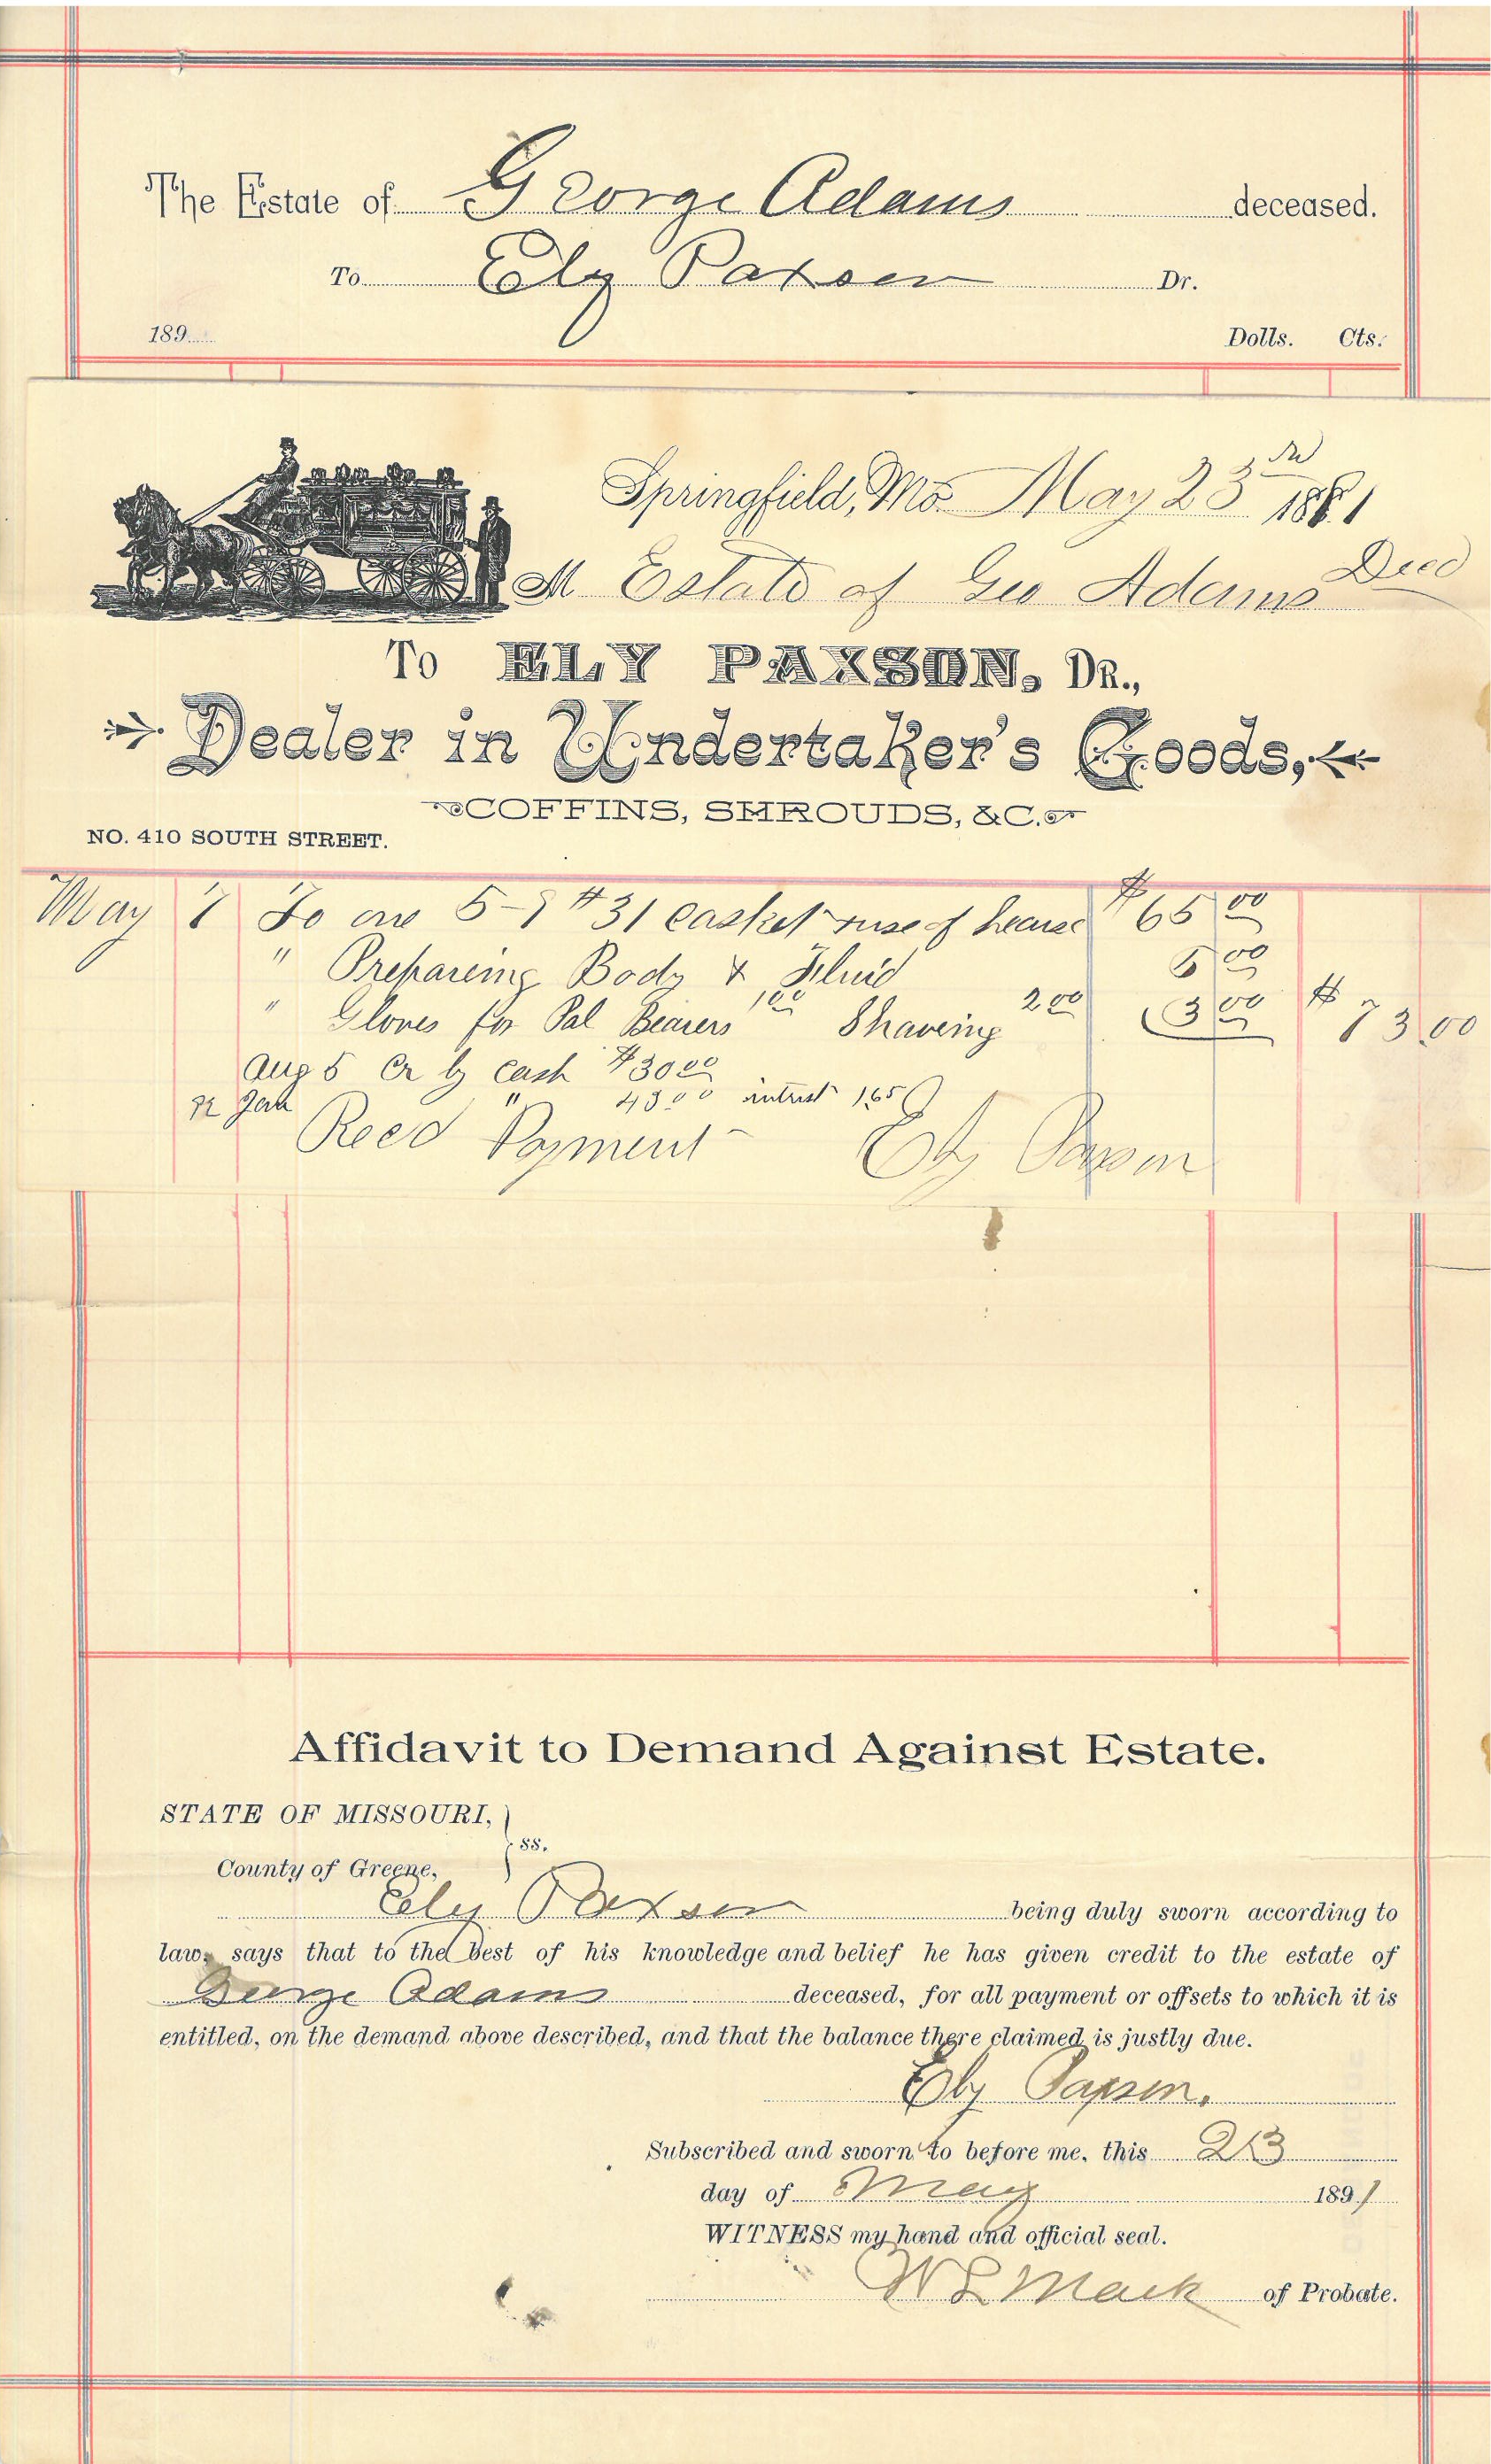 The Estate of George Adams deceased.
To Ely Paxson Dr.
189 Dolls. Cts.
Springfield, Mo. May 23rd 1891
M Estate of Geo Adams Decd
To ELY PAXSON, DR.,
Dealer in Undertaker's Goods,
COFFINS, SHROUDS, &C.
NO. 410 SOUTH STREET.
May 7 To one 5-9 #31 casket & use of hearse $65 00
" Prepareing Body & Fluid 5 00
" Gloves for Pal Bearers 1 00 Shaveing 2 00 3 00 $ 73 00
Aug 5 Cr by Cash $30 00
92 Jan " 43 00 intrest 1.65
Recd Payment Ely Paxson
Affidavit to Demand Against Estate.
STATE OF MISSOURI,
ss.
County of Greene,
Ely Paxson being duly sworn according to
law, says that to the best of his knowledge and belief he has given credit to the estate of
George Adams deceased, for all payment or offsets to which it is
entitled, on the demand above described, and that the balance there claimed is justly due.
Ely Paxson.
Subscribed and sworn to before me, this 23
day of May 1891
WITNESS my hand and official seal.
W L Mack of Probate.